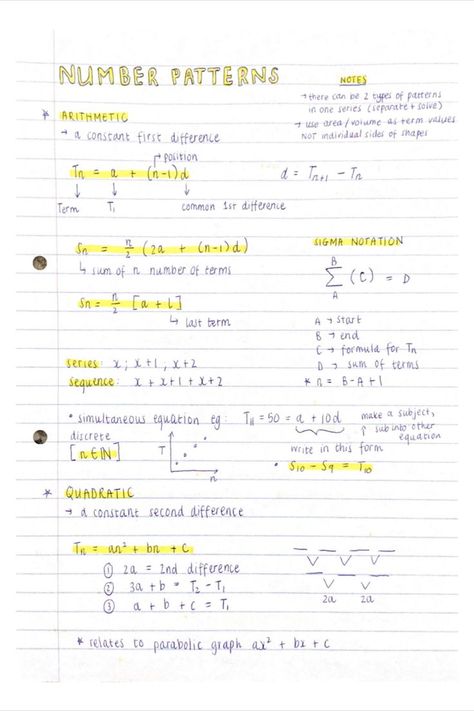 NUMBER PATTERNS
NOTES
→ there can be 2 types of patterns
in one series (separate + solve)
→ use area/volume as term values
NOT individual sides of shapes
* ARITHMETIC
→ a constant first difference
position
Tn = a + (n-1)d
d = Tn+1 - Tn
Term
T1
common 1st difference
Sn = n/2 (2a + (n-1)d)
↳ sum of n number of terms
Sn = n/2 [a + l]
↳ last term
SIGMA NOTATION
B
∑ (C) = D
A
A → start
B → end
C → formula for Tn
D → sum of terms
* n = B-A+1
series: x; x+1, x+2
sequence: x + x+1 + x+2
• simultaneous equation eg: T11 = 50 = a + 10d
make a subject,
sub into other
equation
write in this form
discrete
[n∈ℕ]
T
n
• S10 - S9 = T10
* QUADRATIC
→ a constant second difference
Tn = an² + bn + c
① 2a = 2nd difference
② 3a + b = T2 - T1
③ a + b + c = T1
2a 2a
* relates to parabolic graph ax² + bx + c